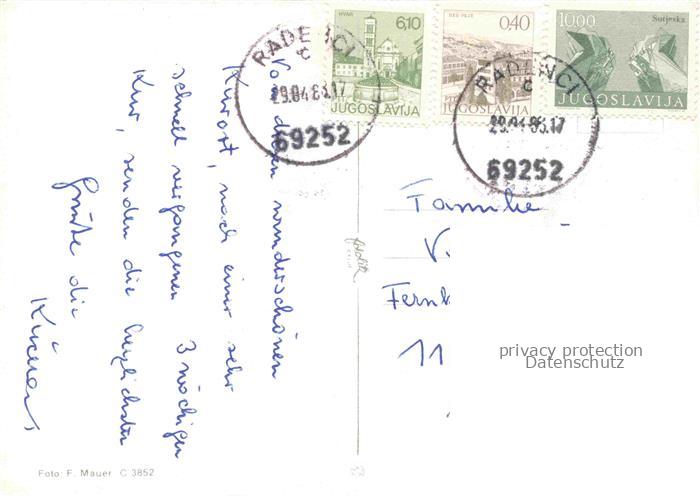 HVAR
6,10
JUGOSLAVIJA
0,40
JUGOSLAVIJA
1000
Sutjeska
JUGOSLAVIJA
RADENCI
č
29.04.83.17
69252
RADENCI
č
29.04.83.17
69252
Von diesem wunderschönen
Kurort, nach einer sehr
schnell vergangenen 3 wöchigen
Kur, senden die herzlichsten
Grüße die
Familie
V.
Fern
11
privacy protection
Datenschutz
Foto: F. Mauer C 3852